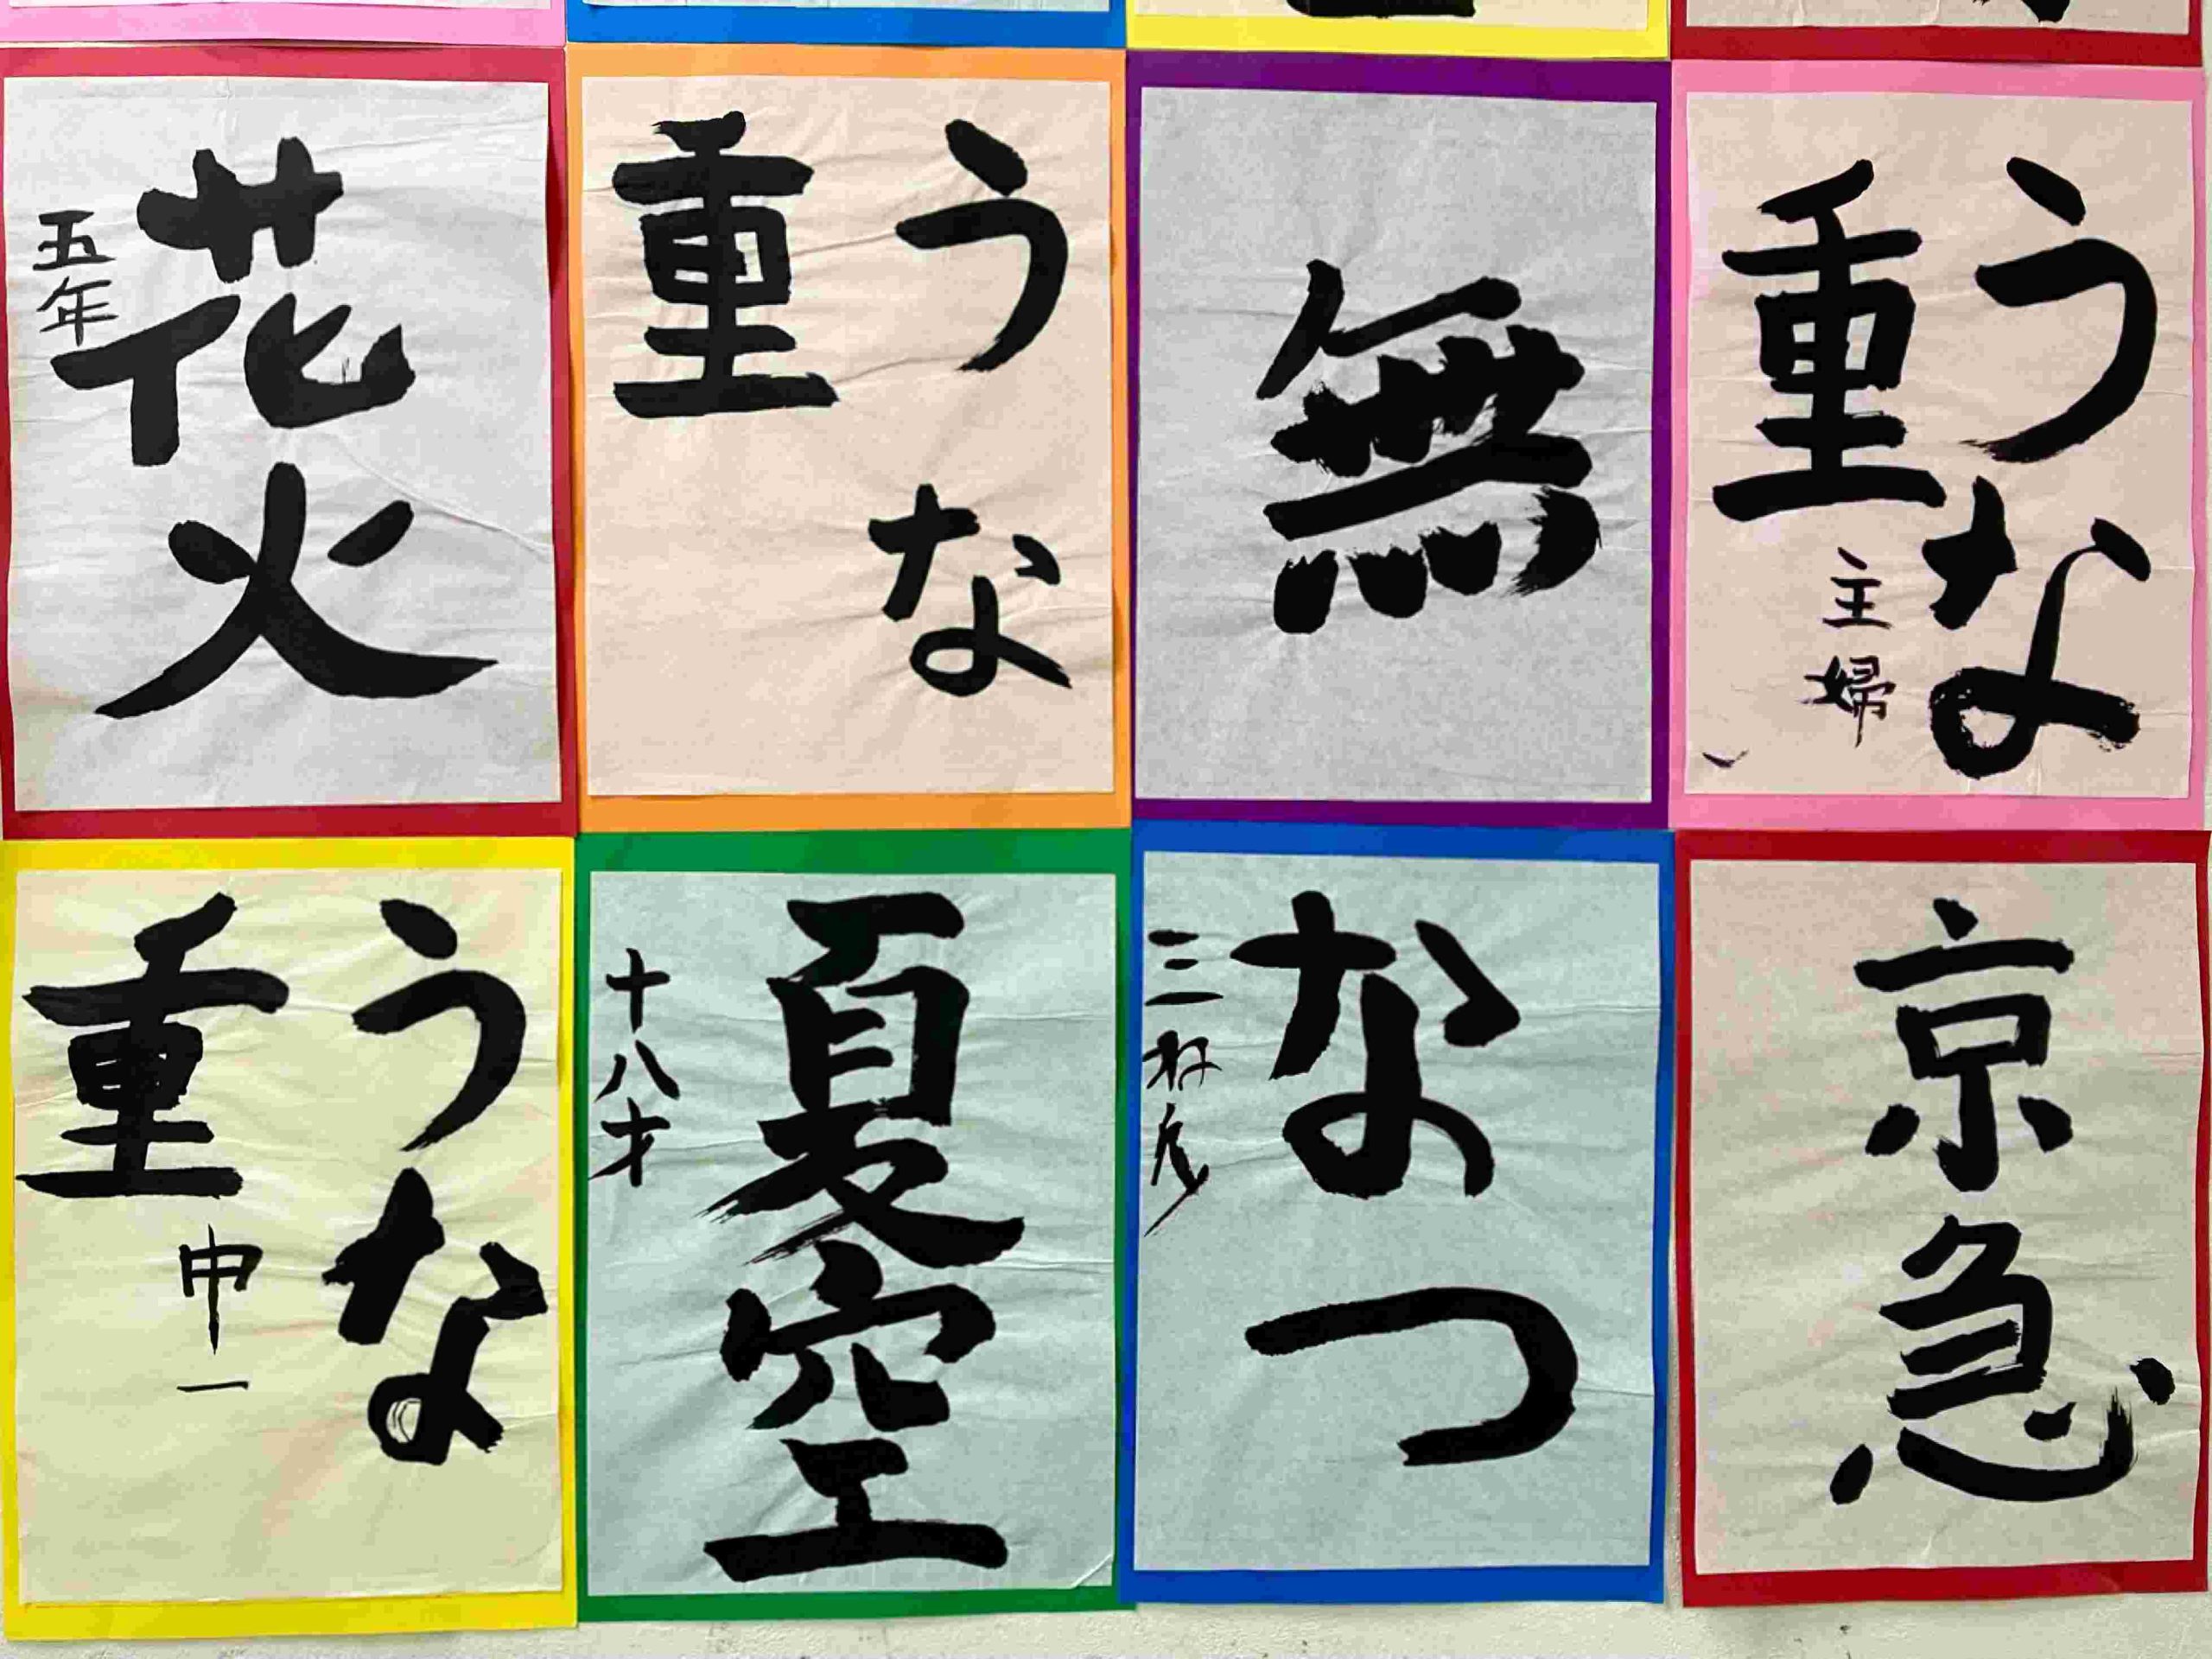 花火
五年
うな
重
無
うな
重
主婦
うな
重
中一
夏空
十八才
なつ
三ねん
京急